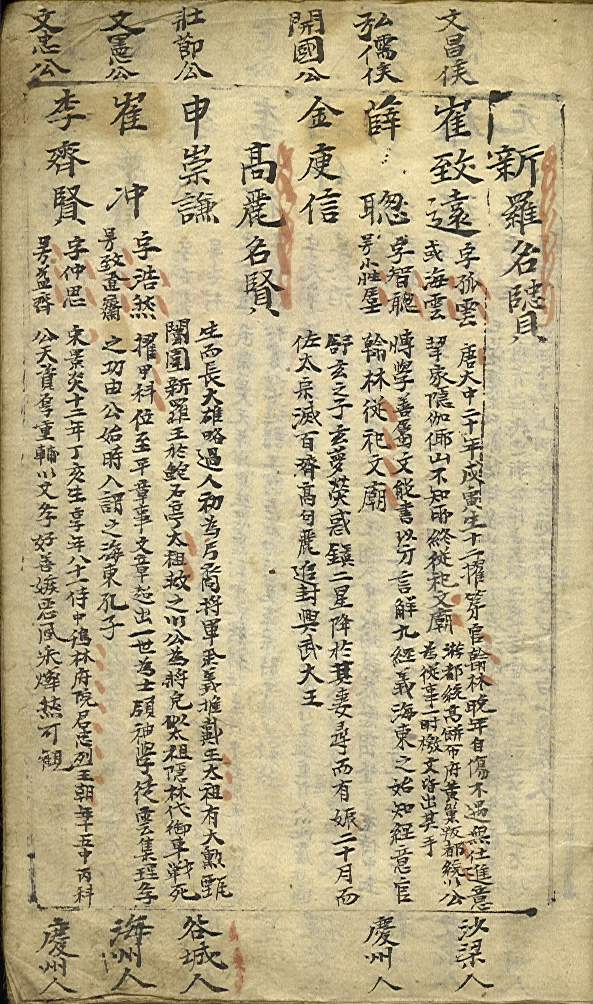 新羅名賢
文昌侯
崔致遠
字孤雲
或海雲
唐大中二十年戊寅生十二擢第官翰林晚年自傷不遇無仕進意
挈家隱伽倻山不知所終從祀文廟
都統高騈 府黃巢叛都統以公
為從事一時檄文皆出其手
沙梁人
弘儒侯
薛聰
字智聰
博學善屬文能書以方言解九經義海東之始知經意官
翰林從祀文廟
慶州人
開國公
金庾信
舒玄之子玄夢熒惑鎮二星降於其妻尋而有娠二十月而
佐太宗滅百濟高句麗追封興武大王
高麗名賢
壯節公
申崇謙
生而長大雄略過人初為弓裔將軍 義推戴王太祖有大勳甄
圍新羅王於鮑石亭太祖救之以公為將皃似太祖隱林代御車戰死
谷城人
文憲公
崔冲
字浩然
擢甲科位至平章事文章超出一世為士 神學徒雲集理學
之功由公始時人謂之海東孔子
海州人
文忠公
李齊賢
字仲思
號益齊
宋景炎十二年丁亥生享年八十一侍中鷄林府院君忠列王朝年十五中丙科
公天資厚重輔以文學好善嫉惡風采燁然可觀
慶州人